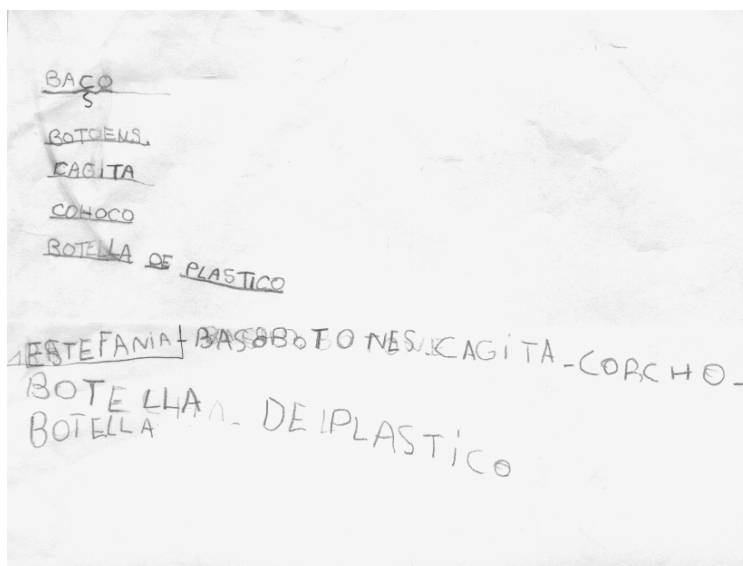 BACO
S
BOTOENS.
CAGITA
COHOCO
BOTELLA DE PLASTICO
ESTEFANIA BASO BOTONES. CAGITA - CORCHO -
BOTELLA
BOTELLA - DE PLASTICO